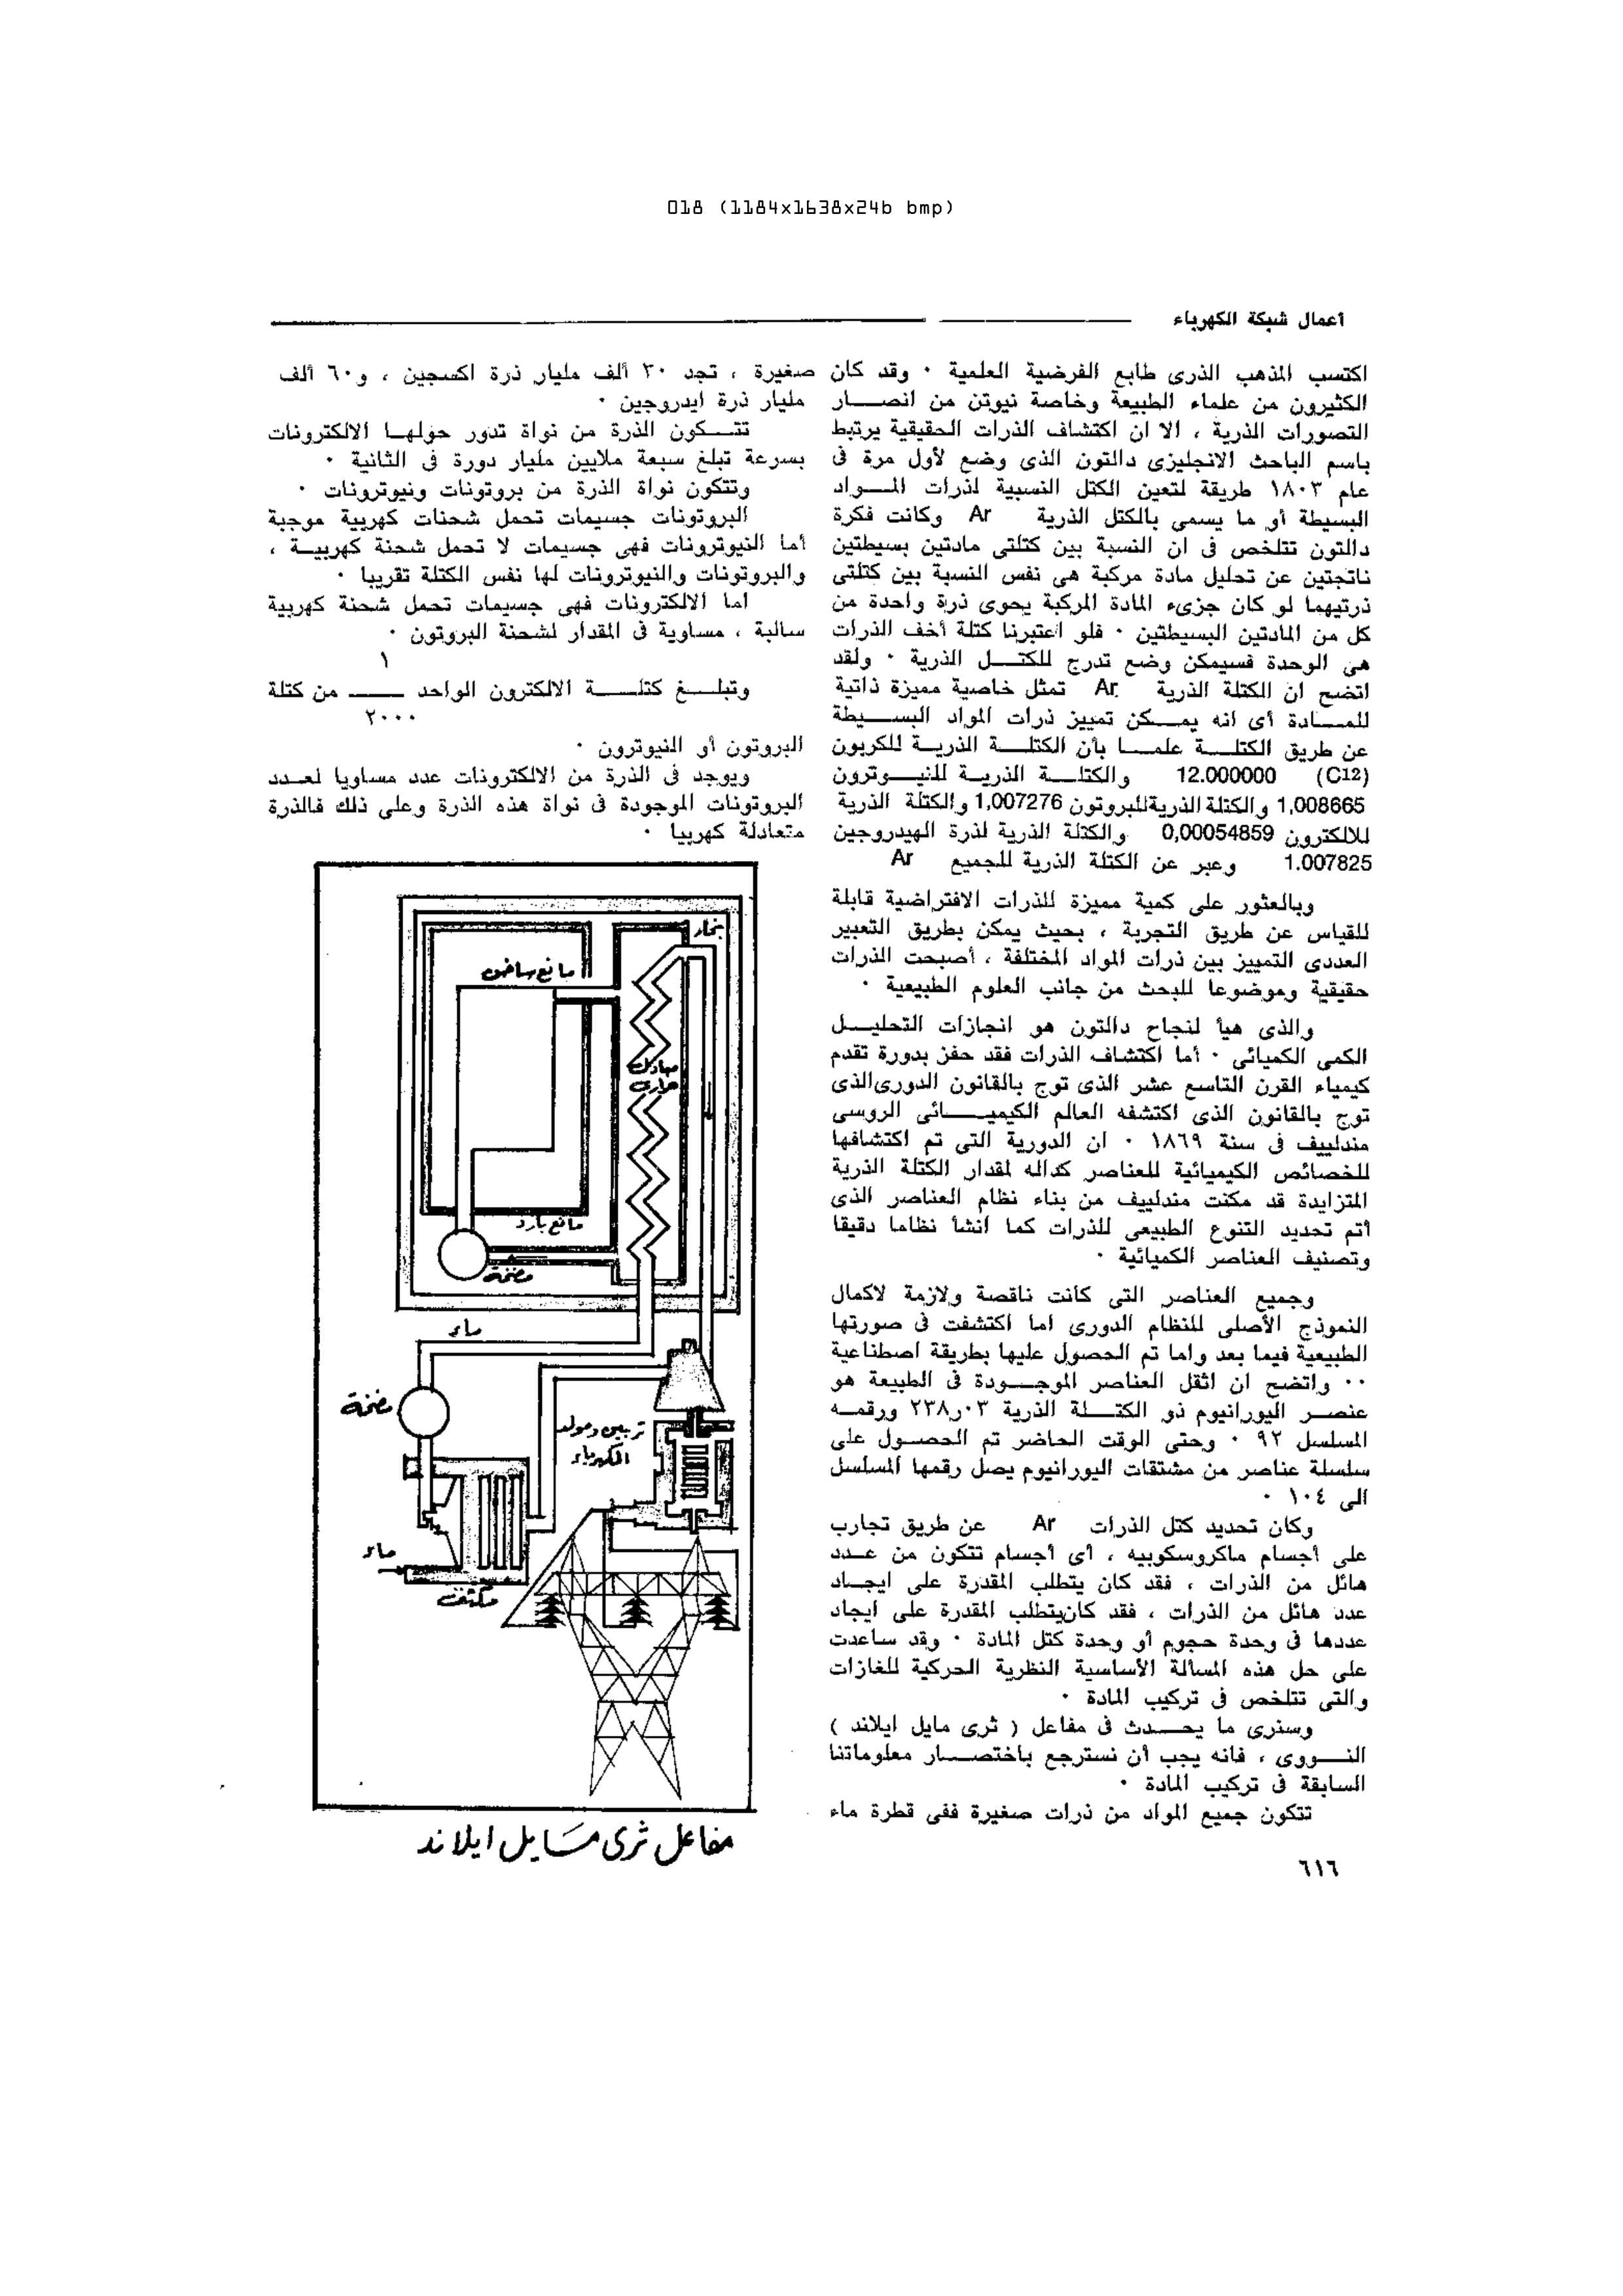 018 (1184x1638x24b bmp)
أعمال شبكة الكهرباء
اكتسب المذهب الذرى طابع الفرضية العلمية ٠ وقد كان
الكثيرون من علماء الطبيعة وخاصة نيوتن من انصـــار
التصورات الذرية ، الا ان اكتشاف الذرات الحقيقية يرتبط
باسم الباحث الانجليزى دالتون الذى وضع لأول مرة فى
عام ١٨٠٣ طريقة لتعين الكتل النسبية لذرات المـــواد
البسيطة أو ما يسمى بالكتل الذرية Ar وكانت فكرة
دالتون تتلخص فى ان النسبة بين كتلتى مادتين بسيطتين
ناتجتين عن تحليل مادة مركبة هى نفس النسبة بين كتلتى
ذرتيهما لو كان جزىء المادة المركبة يحوى ذرة واحدة من
كل من المادتين البسيطتين ٠ فلو اعتبرنا كتلة أخف الذرات
هى الوحدة فسيمكن وضع تدرج للكتـــل الذرية ٠ ولقد
اتضح ان الكتلة الذرية Ar تمثل خاصية مميزة ذاتية
للمـــادة أى انه يمـــكن تمييز ذرات المواد البســـيطة
عن طريق الكتلـــة علمـــا بأن الكتلـــة الذريـــة للكربون
(C12) 12.000000 والكتلـــة الذريـــة للنيـــوترون
1,008665 والكتلة الذريةللبروتون 1,007276 والكتلة الذرية
للالكترون 0,00054859 والكتلة الذرية لذرة الهيدروجين
1.007825 وعبر عن الكتلة الذرية للجميع Ar
وبالعثور على كمية مميزة للذرات الافتراضية قابلة
للقياس عن طريق التجربة ، بحيث يمكن بطريق التعبير
العددى التمييز بين ذرات المواد المختلفة ، أصبحت الذرات
حقيقية وموضوعا للبحث من جانب العلوم الطبيعية ٠
والذى هيأ لنجاح دالتون هو انجازات التحليـــل
الكمى الكميائى ٠ أما اكتشاف الذرات فقد حفن بدورة تقدم
كيمياء القرن التاسع عشر الذى توج بالقانون الدورىالذى
توج بالقانون الذى اكتشفه العالم الكيميـــائى الروسى
مندلييف فى سنة ١٨٦٩ ٠ ان الدورية التى تم اكتشافها
للخصائص الكيميائية للعناصر كداله لمقدار الكتلة الذرية
المتزايدة قد مكنت مندلييف من بناء نظام العناصر الذى
أتم تحديد التنوع الطبيعى للذرات كما أنشأ نظاما دقيقا
وتصنيف العناصر الكميائية ٠
وجميع العناصر التى كانت ناقصة ولازمة لاكمال
النموذج الأصلى للنظام الدورى اما اكتشفت فى صورتها
الطبيعية فيما بعد واما تم الحصول عليها بطريقة اصطناعية
٠٠ واتضح ان اثقل العناصر الموجـــودة فى الطبيعة هو
عنصـــر اليورانيوم ذو الكتـــلة الذرية ٢٣٨٫٠٣ ورقمـــه
المسلسل ٩٢ ٠ وحتى الوقت الحاضر تم الحصـــول على
سلسلة عناصر من مشتقات اليورانيوم يصل رقمها المسلسل
الى ١٠٤ ٠
وكان تحديد كتل الذرات Ar عن طريق تجارب
على أجسام ماكروسكوبيه ، أى أجسام تتكون من عـــدد
هائل من الذرات ، فقد كان يتطلب المقدرة على ايجـــاد
عدد هائل من الذرات ، فقد كانيتطلب المقدرة على ايجاد
عددها فى وحدة حجوم أو وحدة كتل المادة ٠ وقد ساعدت
على حل هذه المسالة الأساسية النظرية الحركية للغازات
والتى تتلخص فى تركيب المادة ٠
وسنرى ما يحـــدث فى مفاعل ( ثرى مايل ايلاند )
النـــووى ، فانه يجب أن نسترجع باختصـــار معلوماتنا
السابقة فى تركيب المادة ٠
تتكون جميع المواد من ذرات صغيرة ففى قطرة ماء
صغيرة ، تجد ٣٠ ألف مليار ذرة اكسجين ، و٦٠ ألف
مليار ذرة ايدروجين ٠
تتـــكون الذرة من نواة تدور حولهـــا الالكترونات
بسرعة تبلغ سبعة ملايين مليار دورة فى الثانية ٠
وتتكون نواة الذرة من بروتونات ونيوترونات ٠
البروتونات جسيمات تحمل شحنات كهربية موجبة
أما النيوترونات فهى جسيمات لا تحمل شحنة كهربيـــة ،
والبروتونات والنيوترونات لها نفس الكتلة تقريبا ٠
اما الالكترونات فهى جسيمات تحمل شحنة كهربية
سالبة ، مساوية فى المقدار لشحنة البروتون ٠
١
وتبلـــغ كتلـــــة الالكترون الواحد ـــــ من كتلة
٢٠٠٠
البروتون أو النيوترون ٠
ويوجد فى الذرة من الالكترونات عدد مساويا لعـــدد
البروتونات الموجودة فى نواة هذه الذرة وعلى ذلك فالذرة
متعادلة كهربيا ٠
بخار
مائع ساخن
مبادل
حرارى
مائع بارد
مضخة
ماء
مضخة
تربين ومولد
الكهرباء
ماء
مكثف
مفاعل ثرى مايل ايلاند
٦١٦